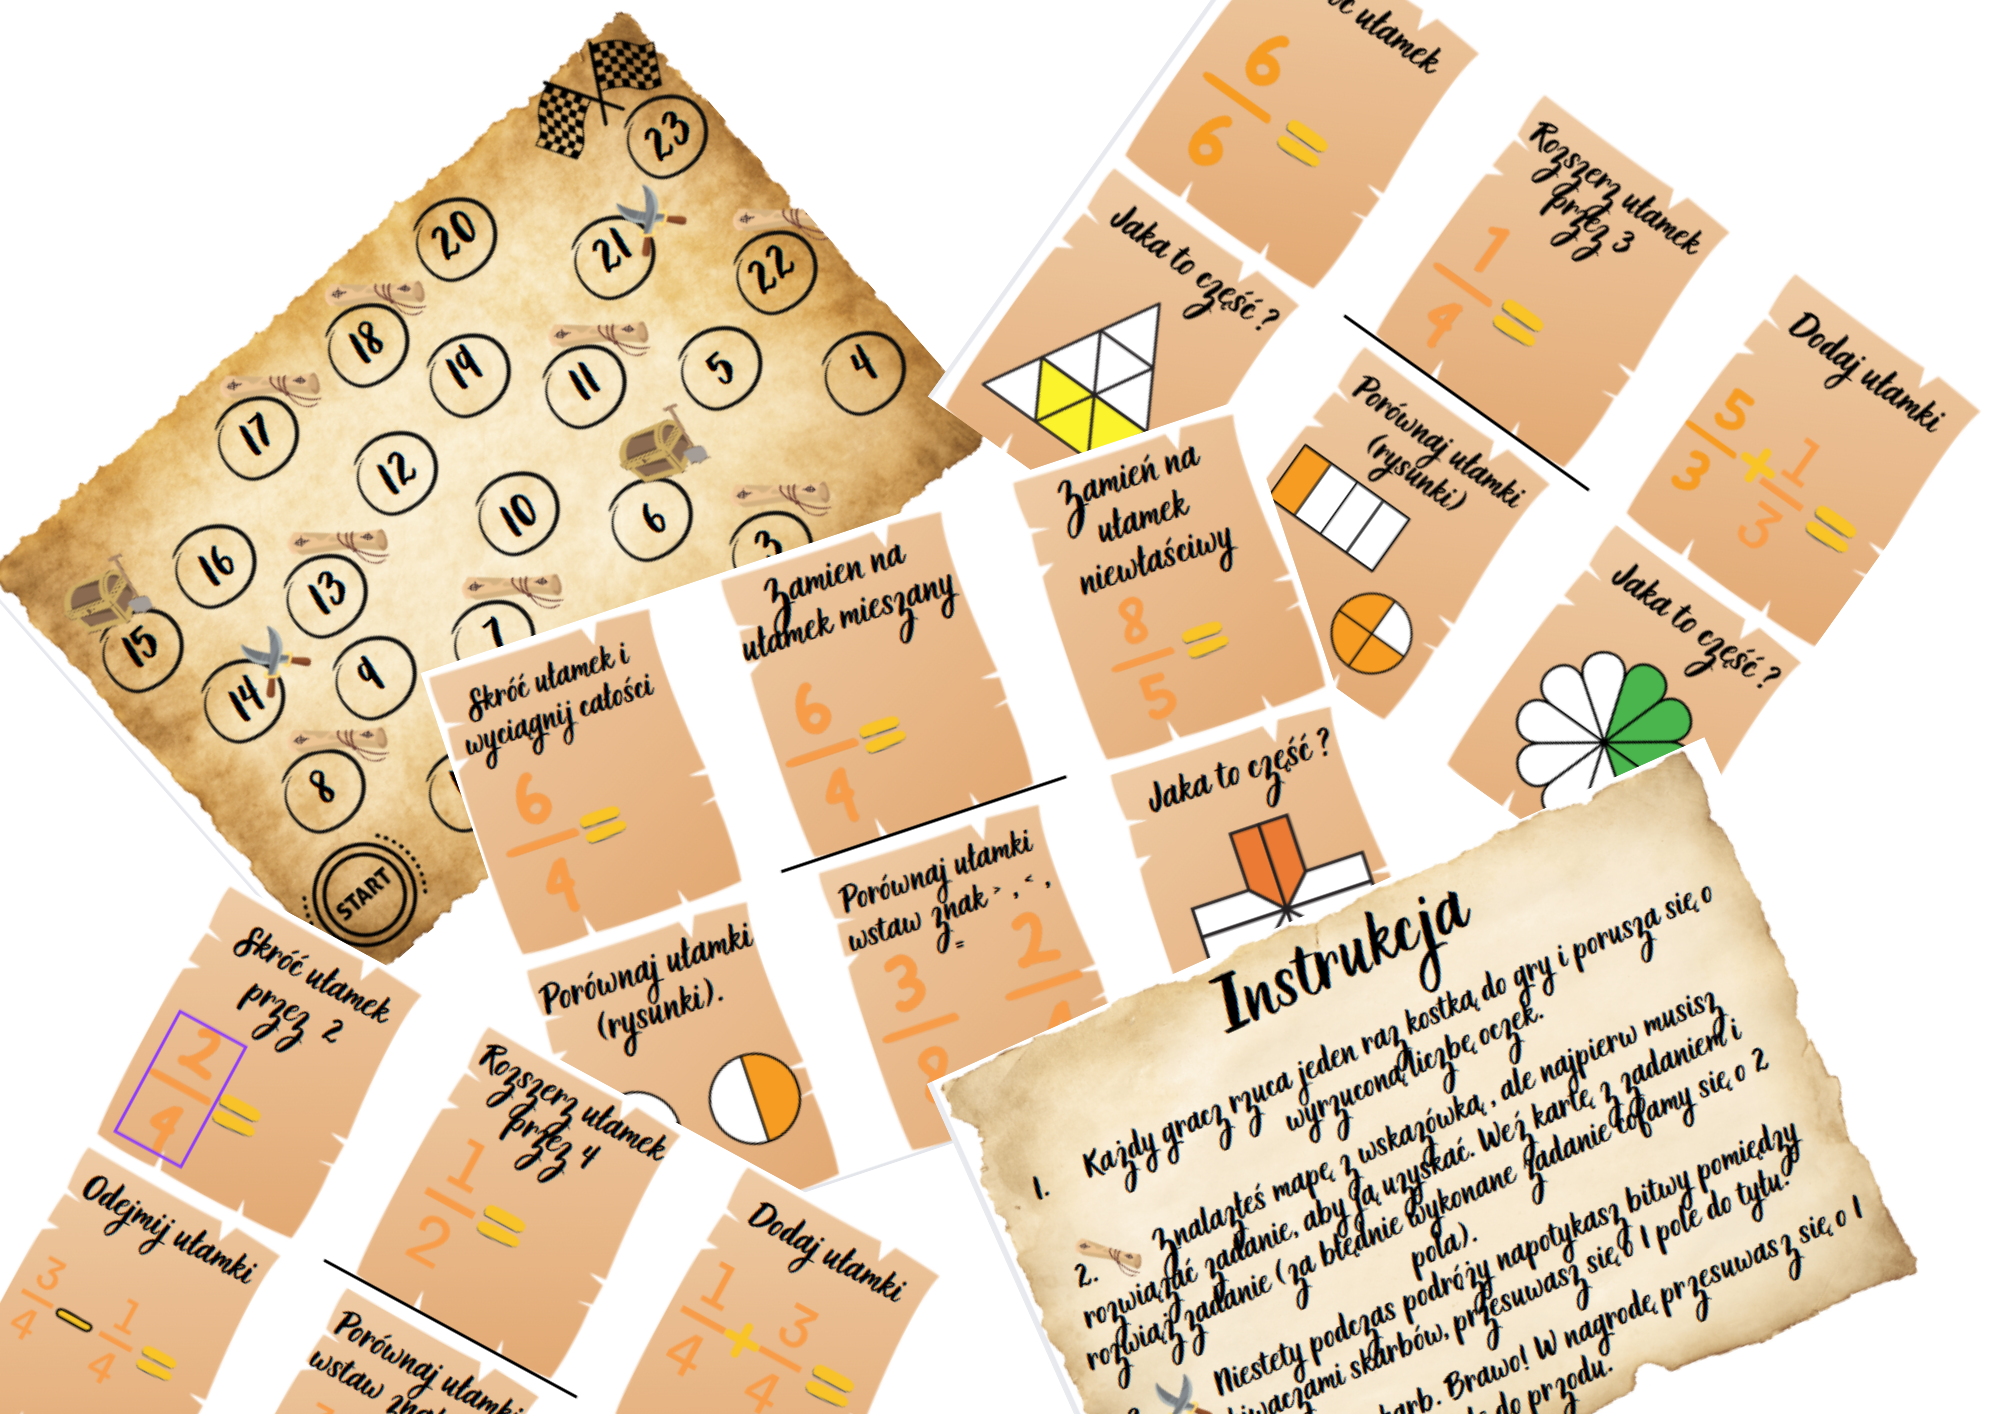 23
20
21
22
18
19
11
5
4
17
12
10
6
3
16
13
7
15
14
9
8
START
ułamek
6
6
=
Rozszerz ułamek
przez 3
1
4
=
Jaka to część ?
Dodaj ułamki
5
3
+
1
3
=
Porównaj ułamki
(rysunki)
Jaka to część ?
Zamień na
ułamek
niewłaściwy
8
5
=
Zamien na
ułamek mieszany
6
4
=
Skróć ułamek i
wyciągnij całości
6
4
=
Jaka to część ?
Porównaj ułamki
wstaw znak > , < ,
=
3
2
Porównaj ułamki
(rysunki).
Skróć ułamek
przez 2
2
4
=
Rozszerz ułamek
przez 4
1
2
=
Odejmij ułamki
3
4
-
1
4
=
Dodaj ułamki
1
4
+
3
4
=
Porównaj ułamki
wstaw
Instrukcja
1. Każdy gracz rzuca jeden raz kostką do gry i porusza się o
wyrzuconą liczbę oczek.
2. Znalazłeś mapę z wskazówką , ale najpierw musisz
rozwiązać zadanie, aby ją uzyskać. Weź kartę z zadaniem i
rozwiąż zadanie (za błędnie wykonane zadanie cofamy się o 2
pola).
Niestety podczas podróży napotykasz bitwy pomiędzy
skarbów, przesuwasz się o 1 pole do tyłu.
Brawo! W nagrodę przesuwasz się o 1
do przodu.